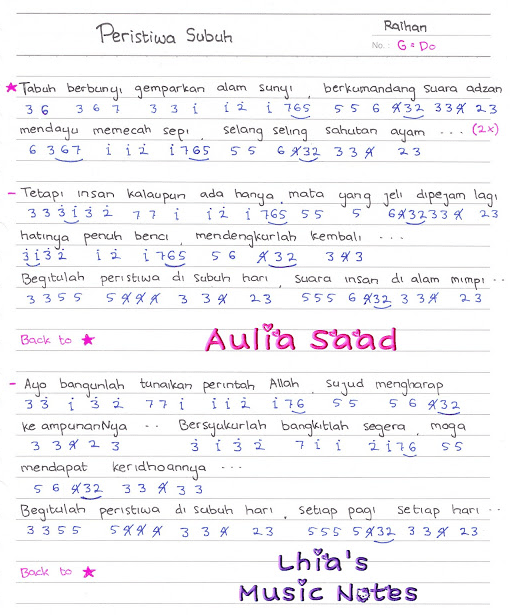 Peristiwa Subuh
Raihan
No.: G = Do
★ Tabuh berbunyi gemparkan alam sunyi , berkumandang suara adzan
3 6 3 6 7 3 3 1̇ 1̇ 2̇ 1̇ 765 5 5 6 4̸32 3 3 4̸ 2 3
mendayu memecah sepi , selang seling sahutan ayam ... (2x)
6 3 67 1̇ 1̇ 2̇ 1̇ 765 5 5 6 4̸32 3 3 4̸ 2 3
- Tetapi insan kalaupun ada hanya, mata yang jeli dipejam lagi
3 3 3̇1̇ 3̇ 2̇ 7 7 1̇ 1̇ 2̇ 1̇ 765 5 5 5 6 4̸32 3 3 4̸ 2 3
hatinya penuh benci , mendengkurlah kembali ...
3̇1̇ 3̇ 2̇ 1̇ 2̇ 1̇ 765 5 6 4̸32 3 4̸ 3
Begitulah peristiwa di subuh hari , suara insan di alam mimpi ..
3 3 5 5 5 4̸ 4̸ 4̸ 3 3 4̸ 2 3 5 5 5 6 4̸32 3 3 4̸ 2 3
Back to ★
Aulia Saad
- Ayo bangunlah tunaikan perintah Allah , sujud mengharap
3 3̇ 1̇ 3̇ 2̇ 7 7 1̇ 1̇ 1̇ 2̇ 1̇76 5 5 5 6 4̸32
ke ampunanNya .. Bersyukurlah bangkitlah segera , moga
3 3 4̸ 2 3 3̇ 1̇ 3̇ 2̇ 7 1̇ 1̇ 2̇ 1̇76 5 5
mendapat keridhoannya ...
5 6 4̸32 3 3 4̸ 3 3
Begitulah peristiwa di subuh hari , setiap pagi setiap hari ..
3 3 5 5 5 4̸ 4̸ 4̸ 3 3 4̸ 2 3 5 5 5 5 4̸32 3 3 4̸ 2 3
Back to ★
Lhia's
Music Notes